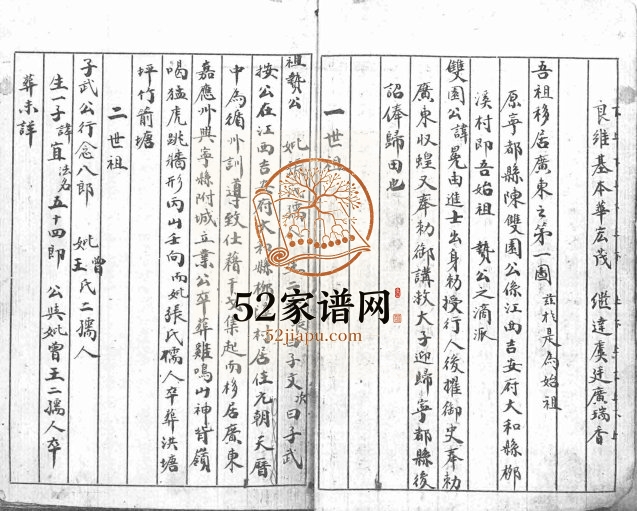 良維基本華宏茂 繼達虞廷廣瑞香
吾祖移居廣東之第一圖 兹於是為始祖
原寧都縣陳雙園公係江西吉安府大和縣柳
溪村即吾始祖 贄公之滴派
雙園公諱晃由進士出身勅授行人後擢御史奉勅
廣東收蝗又奉勅御講救大子迎歸寧都縣後
詔俸歸田也
一世祖
祖贄公 妣 孺人 曰子文 次曰子武
按公在江西吉安府大和縣柳 村居住元朝天曆
中為循州訓導致仕藉干戈集起而移居廣東
嘉應州興寧縣附城立業公卒葬雞鳴山神背嶺
喝猛虎跳牆形丙山壬向而妣張氏孺人卒葬洪塘
坪竹前塘
二世祖
子武公行念八郎 妣曾王氏二孺人
生一子諱宣法名五十四郎 公與妣曾王二孺人卒
葬未詳
52家谱网
52jiapu.com